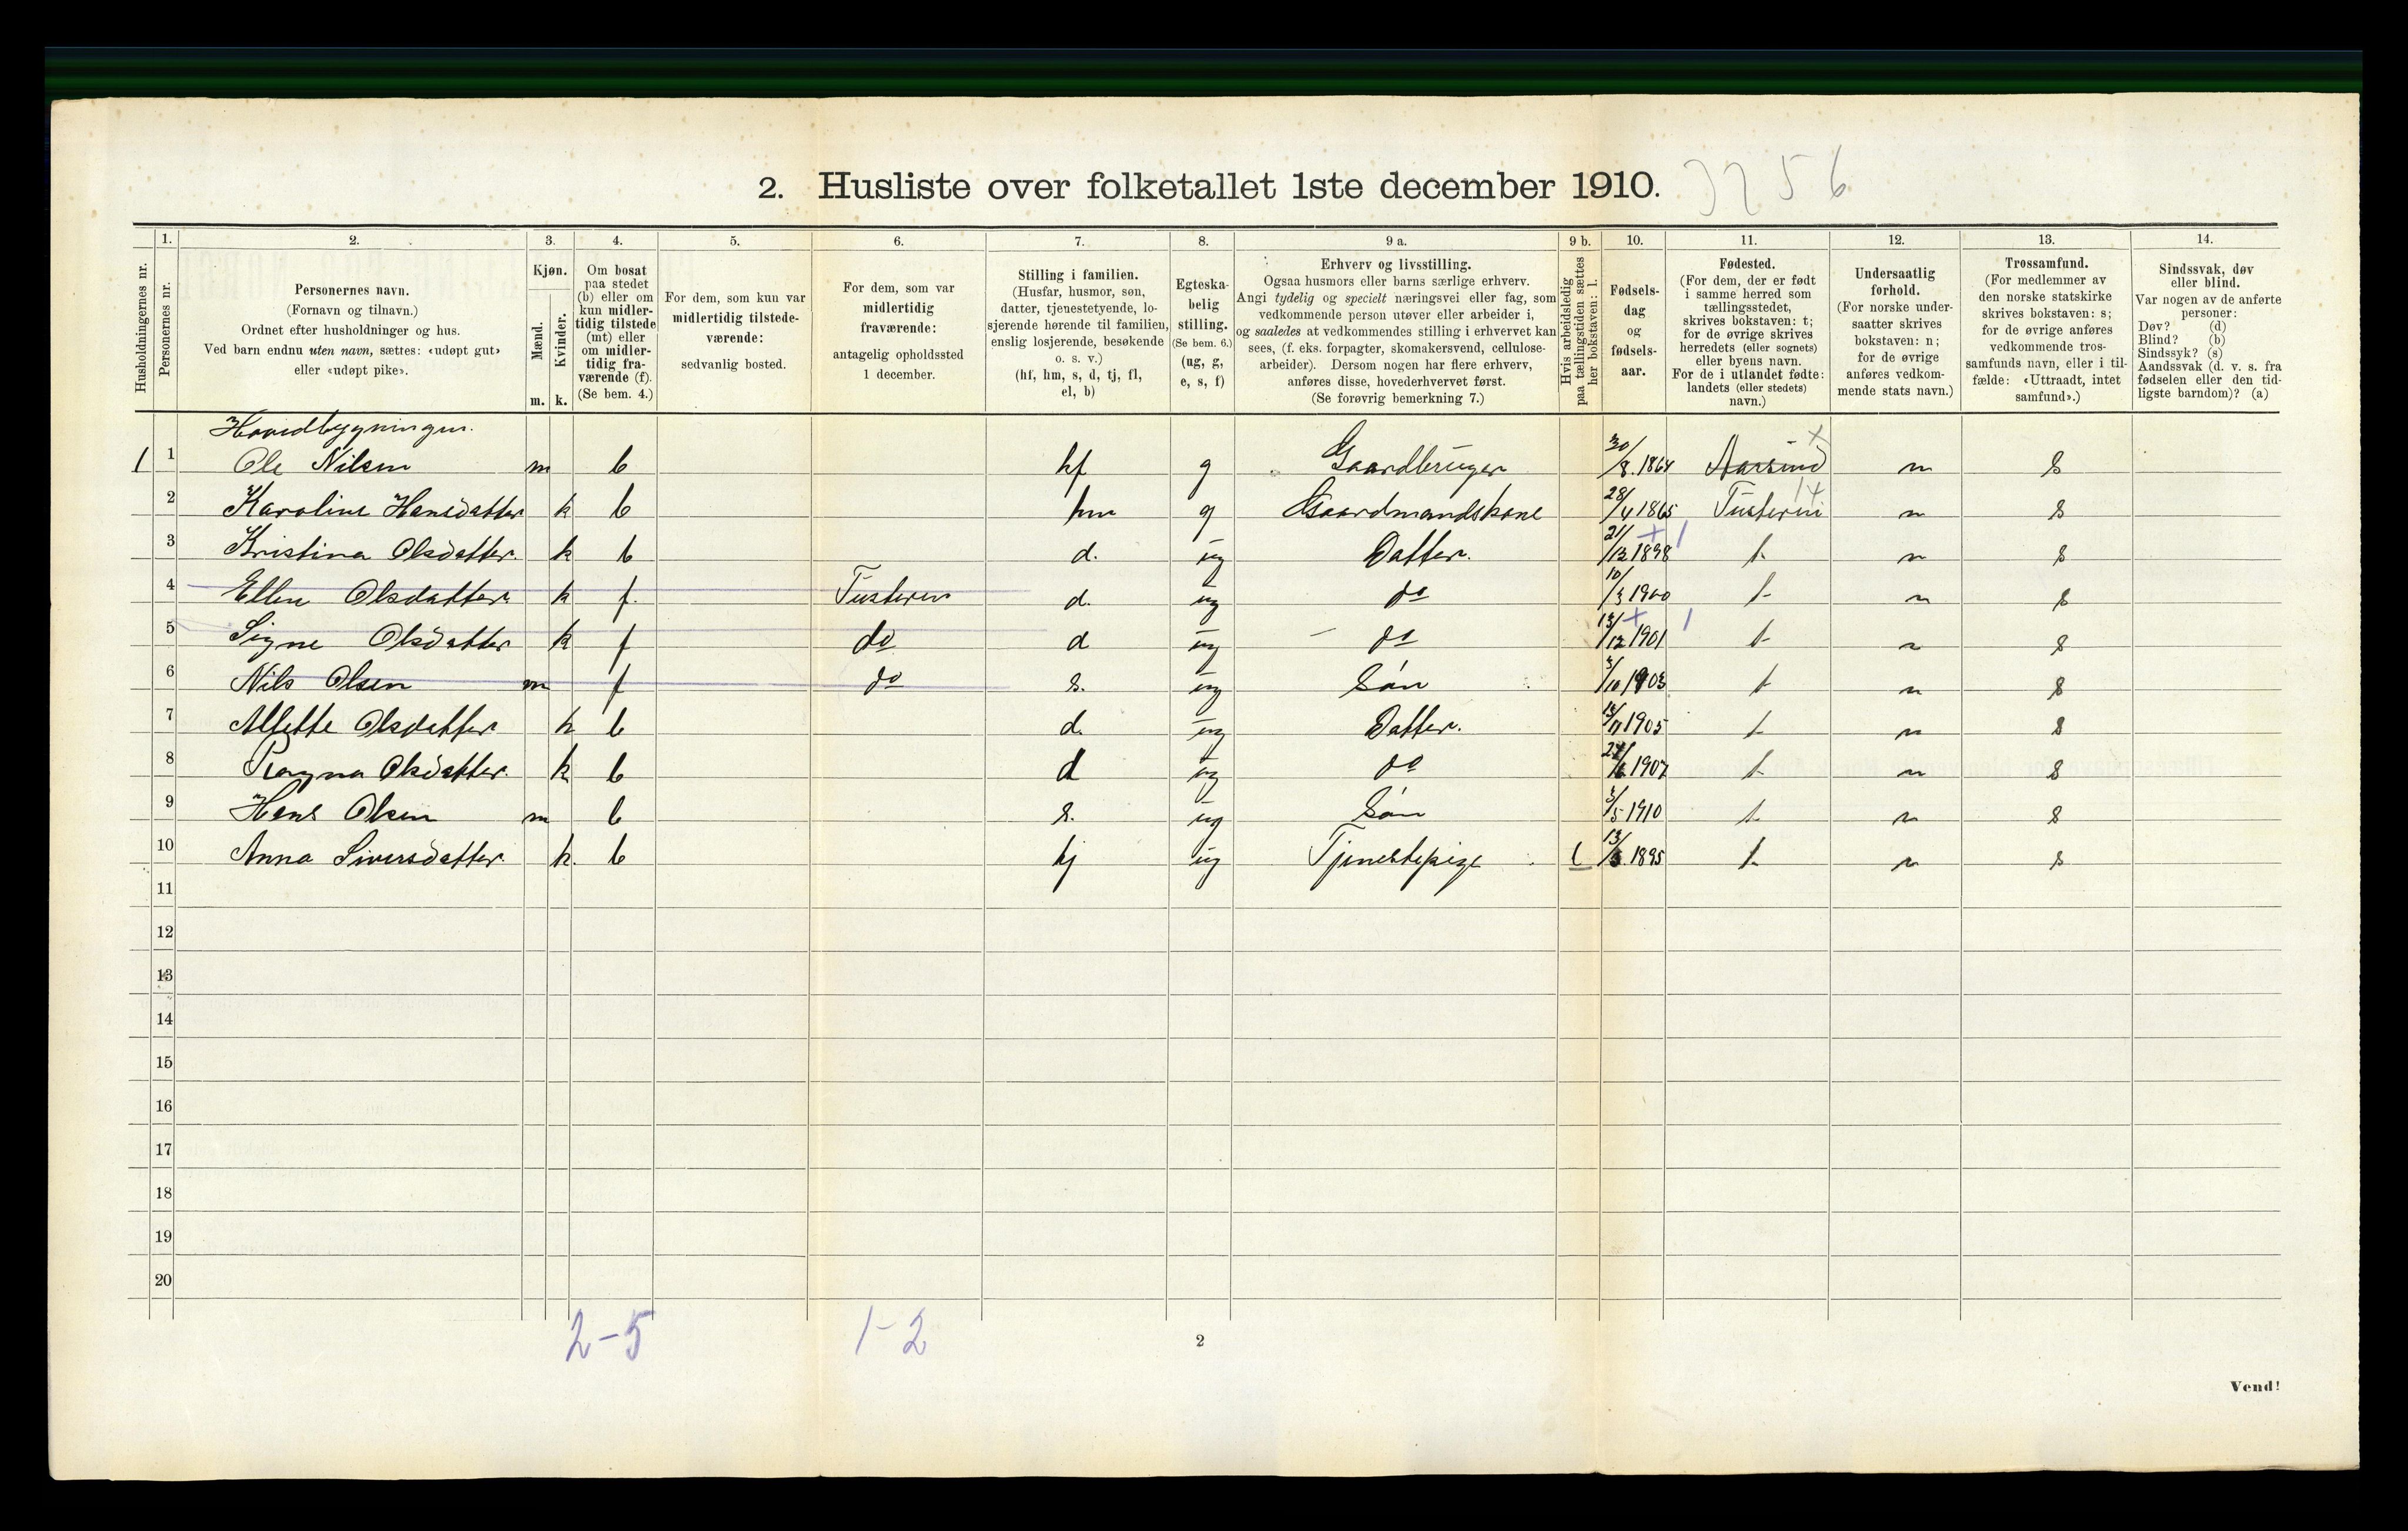 2. Husliste over folketallet 1ste december 1910. 3256
Husholdningernes nr.
1. Personernes nr.
2. Personernes navn.
(Fornavn og tilnavn.)
Ordnet efter husholdninger og hus.
Ved barn endnu uten navn, sættes: «udøpt gut»
eller «udøpt pike».
3. Kjøn.
Mænd. m.
Kvinder. k.
4. Om bosat
paa stedet
(b) eller om
kun midler-
tidig tilstede
(mt) eller
om midler-
tidig fra-
værende (f).
(Se bem. 4.)
5. For dem, som kun var
midlertidig tilstede-
værende:
sedvanlig bosted.
6. For dem, som var
midlertidig
fraværende:
antagelig opholdssted
1 december.
7. Stilling i familien.
(Husfar, husmor, søn,
datter, tjenestetyende, lo-
sjerende hørende til familien,
enslig losjerende, besøkende
o. s. v.)
(hf, hm, s, d, tj, fl,
el, b)
8. Egteska-
belig
stilling.
(Se bem. 6.)
(ug, g,
e, s, f)
9 a. Erhverv og livsstilling.
Ogsaa husmors eller barns særlige erhverv.
Angi tydelig og specielt næringsvei eller fag, som
vedkommende person utøver eller arbeider i,
og saaledes at vedkommendes stilling i erhvervet kan
sees, (f. eks. forpagter, skomakersvend, cellulose-
arbeider). Dersom nogen har flere erhverv,
anføres disse, hovederhvervet først.
(Se forøvrig bemerkning 7.)
9 b. Hvis arbeidsledig
paa tællingstiden sættes
her bokstaven: l.
10. Fødsels-
dag
og
fødsels-
aar.
11. Fødested.
(For dem, der er født
i samme herred som
tællingsstedet,
skrives bokstaven: t;
for de øvrige skrives
herredets (eller sognets)
eller byens navn.
For de i utlandet fødte:
landets (eller stedets)
navn.)
12. Undersaatlig
forhold.
(For norske under-
saatter skrives
bokstaven: n;
for de øvrige
anføres vedkom-
mende stats navn.)
13. Trossamfund.
(For medlemmer av
den norske statskirke
skrives bokstaven: s;
for de øvrige anføres
vedkommende tros-
samfunds navn, eller i til-
fælde: «Uttraadt, intet
samfund».)
14. Sindssvak, døv
eller blind.
Var nogen av de anførte
personer:
Døv? (d)
Blind? (b)
Sindssyk? (s)
Aandssvak (d. v. s. fra
fødselen eller den tid-
ligste barndom)? (a)
Hovedbygningen.
1 1 Ole Nilsen m b hf g Gaardbruger 30/8. 1864 Aarsund n s
2 Karoline Hansdatter k b hm g Gaardmandskone 28/4 1865 Tusteren n s
3 Kristina Olsdatter. k b d. ug Datter. 21/12 1898 t n s
4 Ellen Olsdatter k f. Tusteren d. ug do 10/3 1900 t n s
5 Signe Olsdatter k f do d ug do 13/12 1901 t n s
6 Nils Olsen m f do s. ug Søn 3/10 1903 t n s
7 Alfette Olsdatter k b d. ug Datter. 1905 t n s
8 Ragna Olsdatter. k b d ug do 1907 t n s
9 Hans Olsen m b s. ug Søn 3/5 1910 t n s
10 Anna Siversdatter. k. b tj ug Tjenestepige l 1895 t n s
11
12
13
14
15
16
17
18
19
20
2-5 1-2
2
Vend!